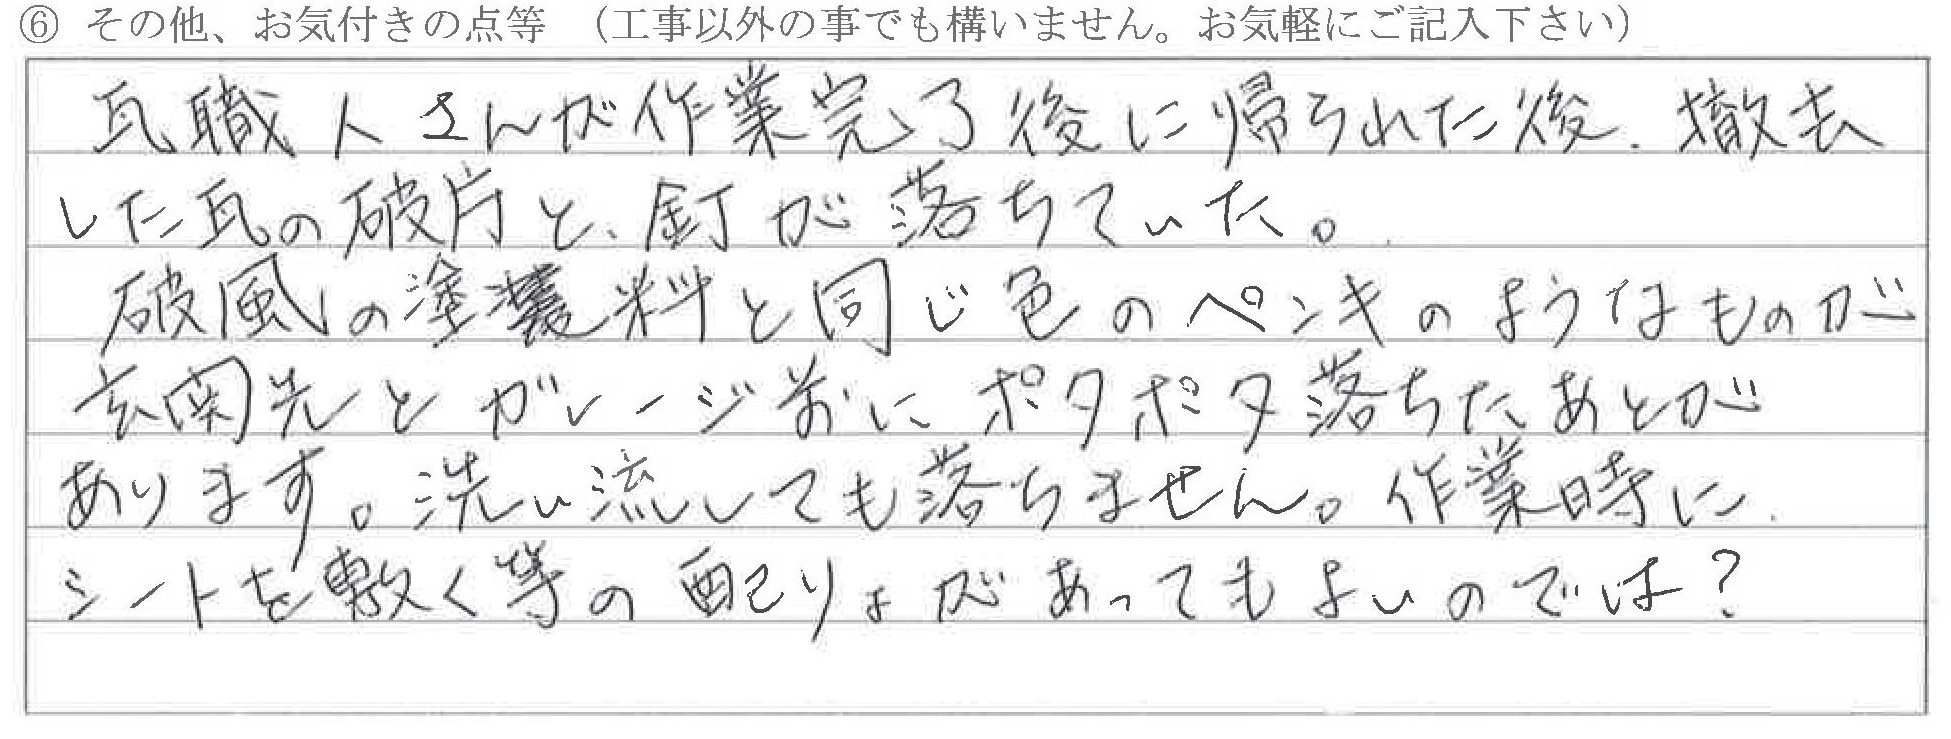 ⑥ その他、お気付きの点等 (工事以外の事でも構いません。お気軽にご記入下さい)
瓦職人さんが作業完了後に帰られた後、撤去
した瓦の破片と、釘が落ちていた。
破風の塗装料と同じ色のペンキのようなものが
玄関先とガレージ前にポタポタ落ちたあとが
あります。洗い流しても落ちません。作業時に
シートを敷く等の配りょがあってもよいのでは?